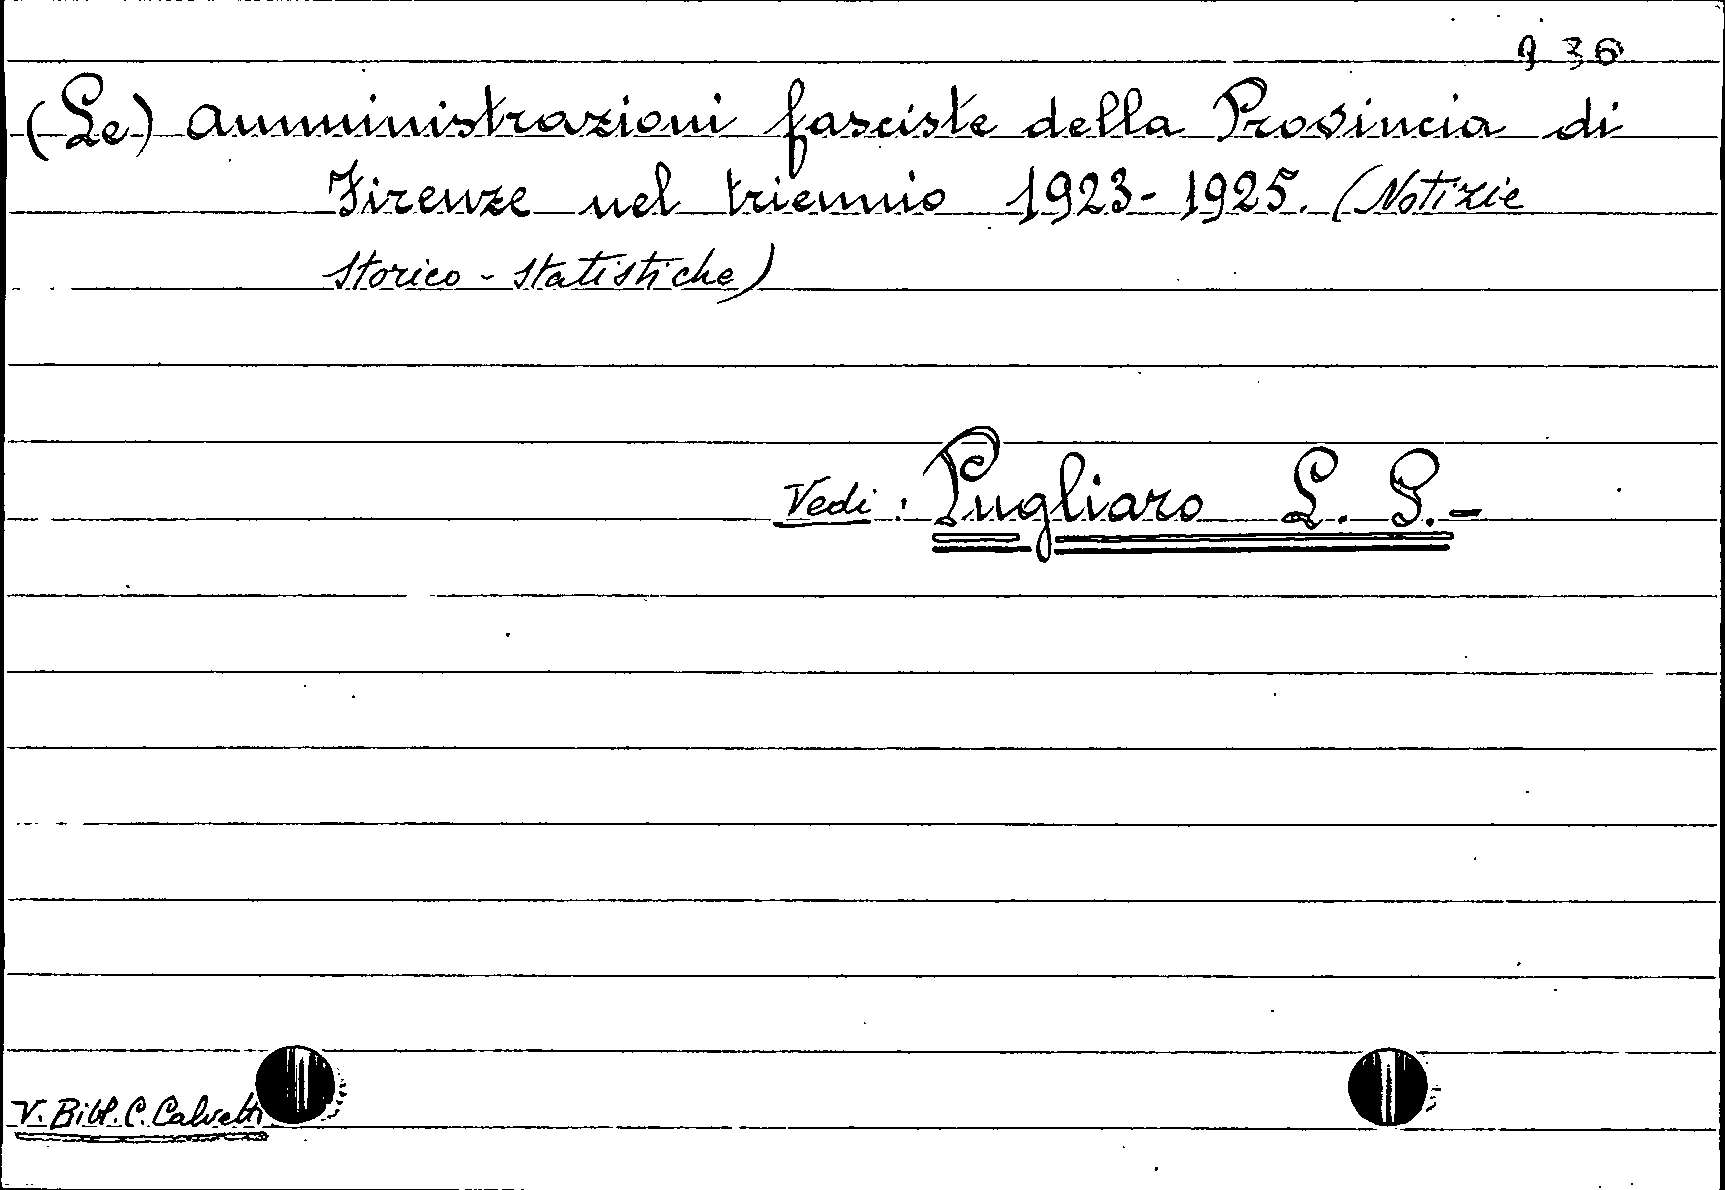 936
(Le) Amministrazioni fasciste della Provincia di
Firenze nel triennio 1923-1925. (Notizie
storico-statistiche)
Vedi: Pugliaro L. P.-
V. Bibl. C. Calvetti